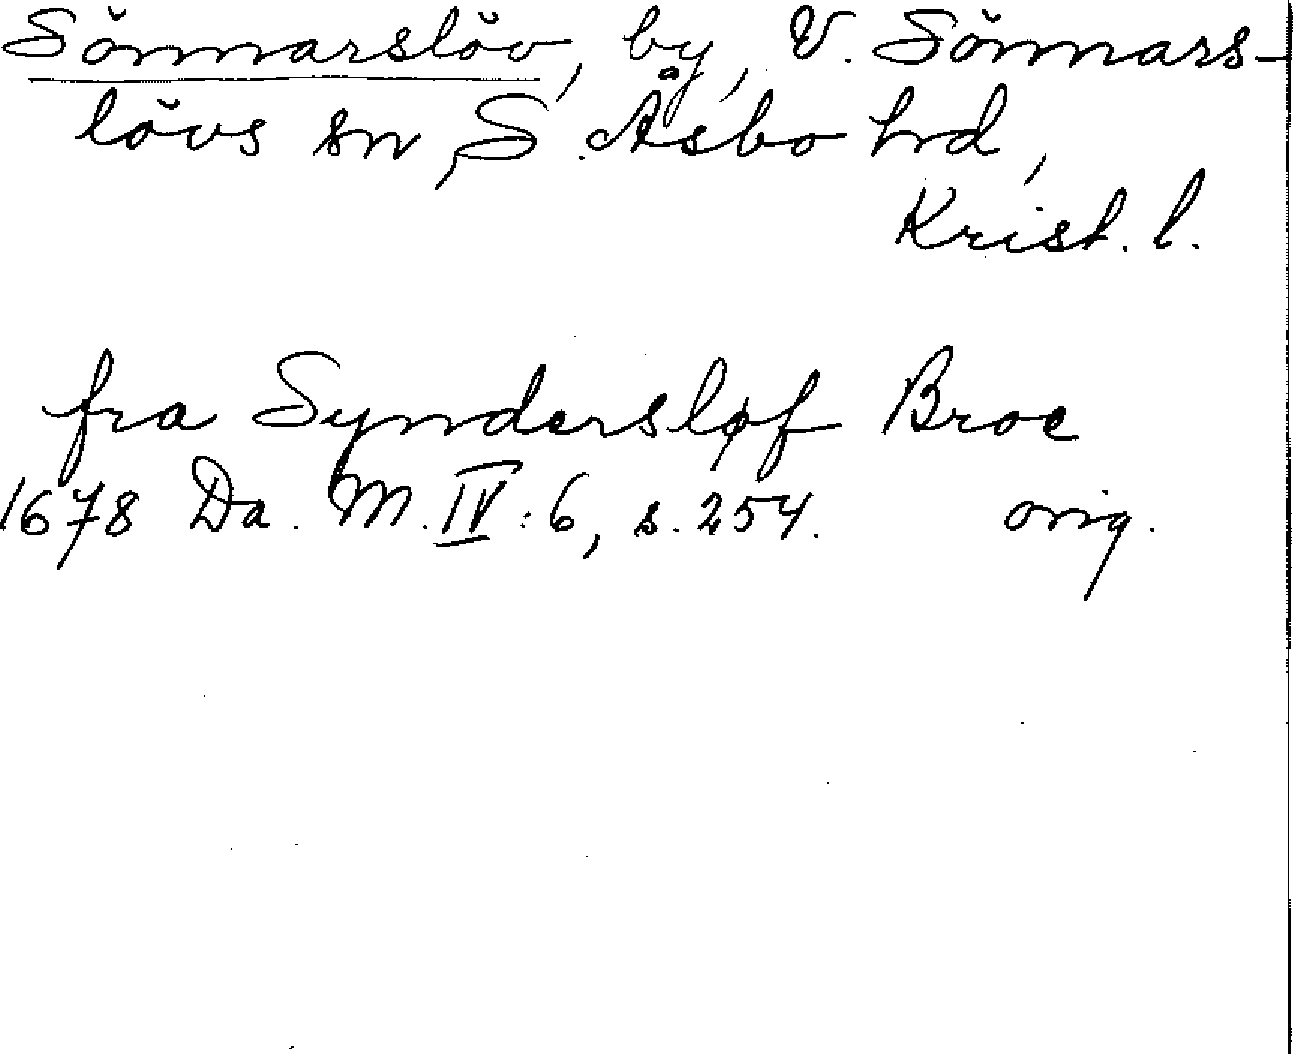 Sönnarslöv, by, V. Sönnars-
lövs sn, S. Åsbo hrd,
Krist. l.
fra Syndersløf Broe
1678 Da. M. IV:6, s. 254. orig.